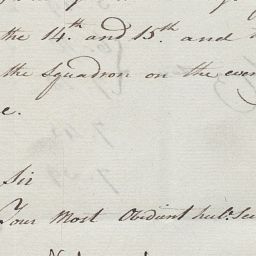 the 14th. and 15th. and
the Squadron on the even
e.
Sir
Your Most Obedient hul. Ser